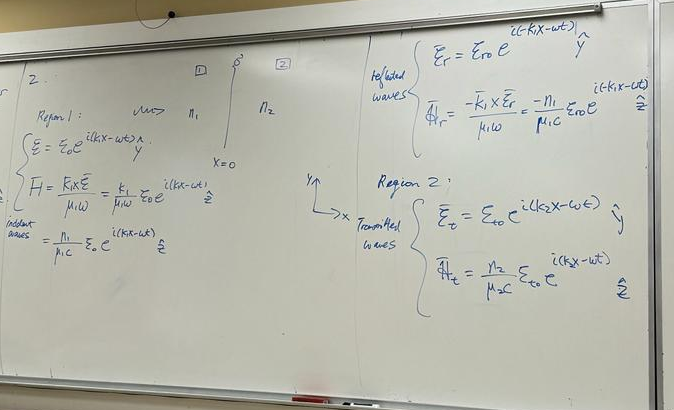 2.
1
2
Region 1:
n₁
n₂
x=0
Ē = Ē₀e^{i(k₁x-ωt)} ŷ
H̄ = k̄₁xĒ/μ₁ω = k₁/μ₁ω Ē₀e^{i(k₁x-ωt)} ẑ
incident
waves
= n₁/μ₁c Ē₀e^{i(k₁x-ωt)} ẑ
y
x
reflected
waves
Ē_r = E_{r0}e^{i(-k₁x-ωt)} ŷ
H̄_r = -k̄₁xĒ_r/μ₁ω = -n₁/μ₁c E_{r0}e^{i(-k₁x-ωt)} ẑ
Region 2:
Transmitted
waves
Ē_t = E_{t0}e^{i(k₂x-ωt)} ŷ
H̄_t = n₂/μ₂c E_{t0}e^{i(k₂x-ωt)} ẑ